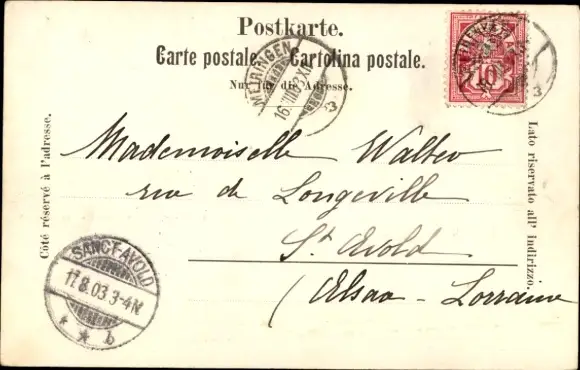 Postkarte.
Carte postale. Cartolina postale.
Nur für die Adresse.
10
Côté réservé à l'adresse.
Lato riservato all' indirizzo.
Mademoiselle Walter
rue de Longeville
St Avold
(Alsace - Lorraine
SANCT-AVOLD
17.8.03.3-4N
* * b